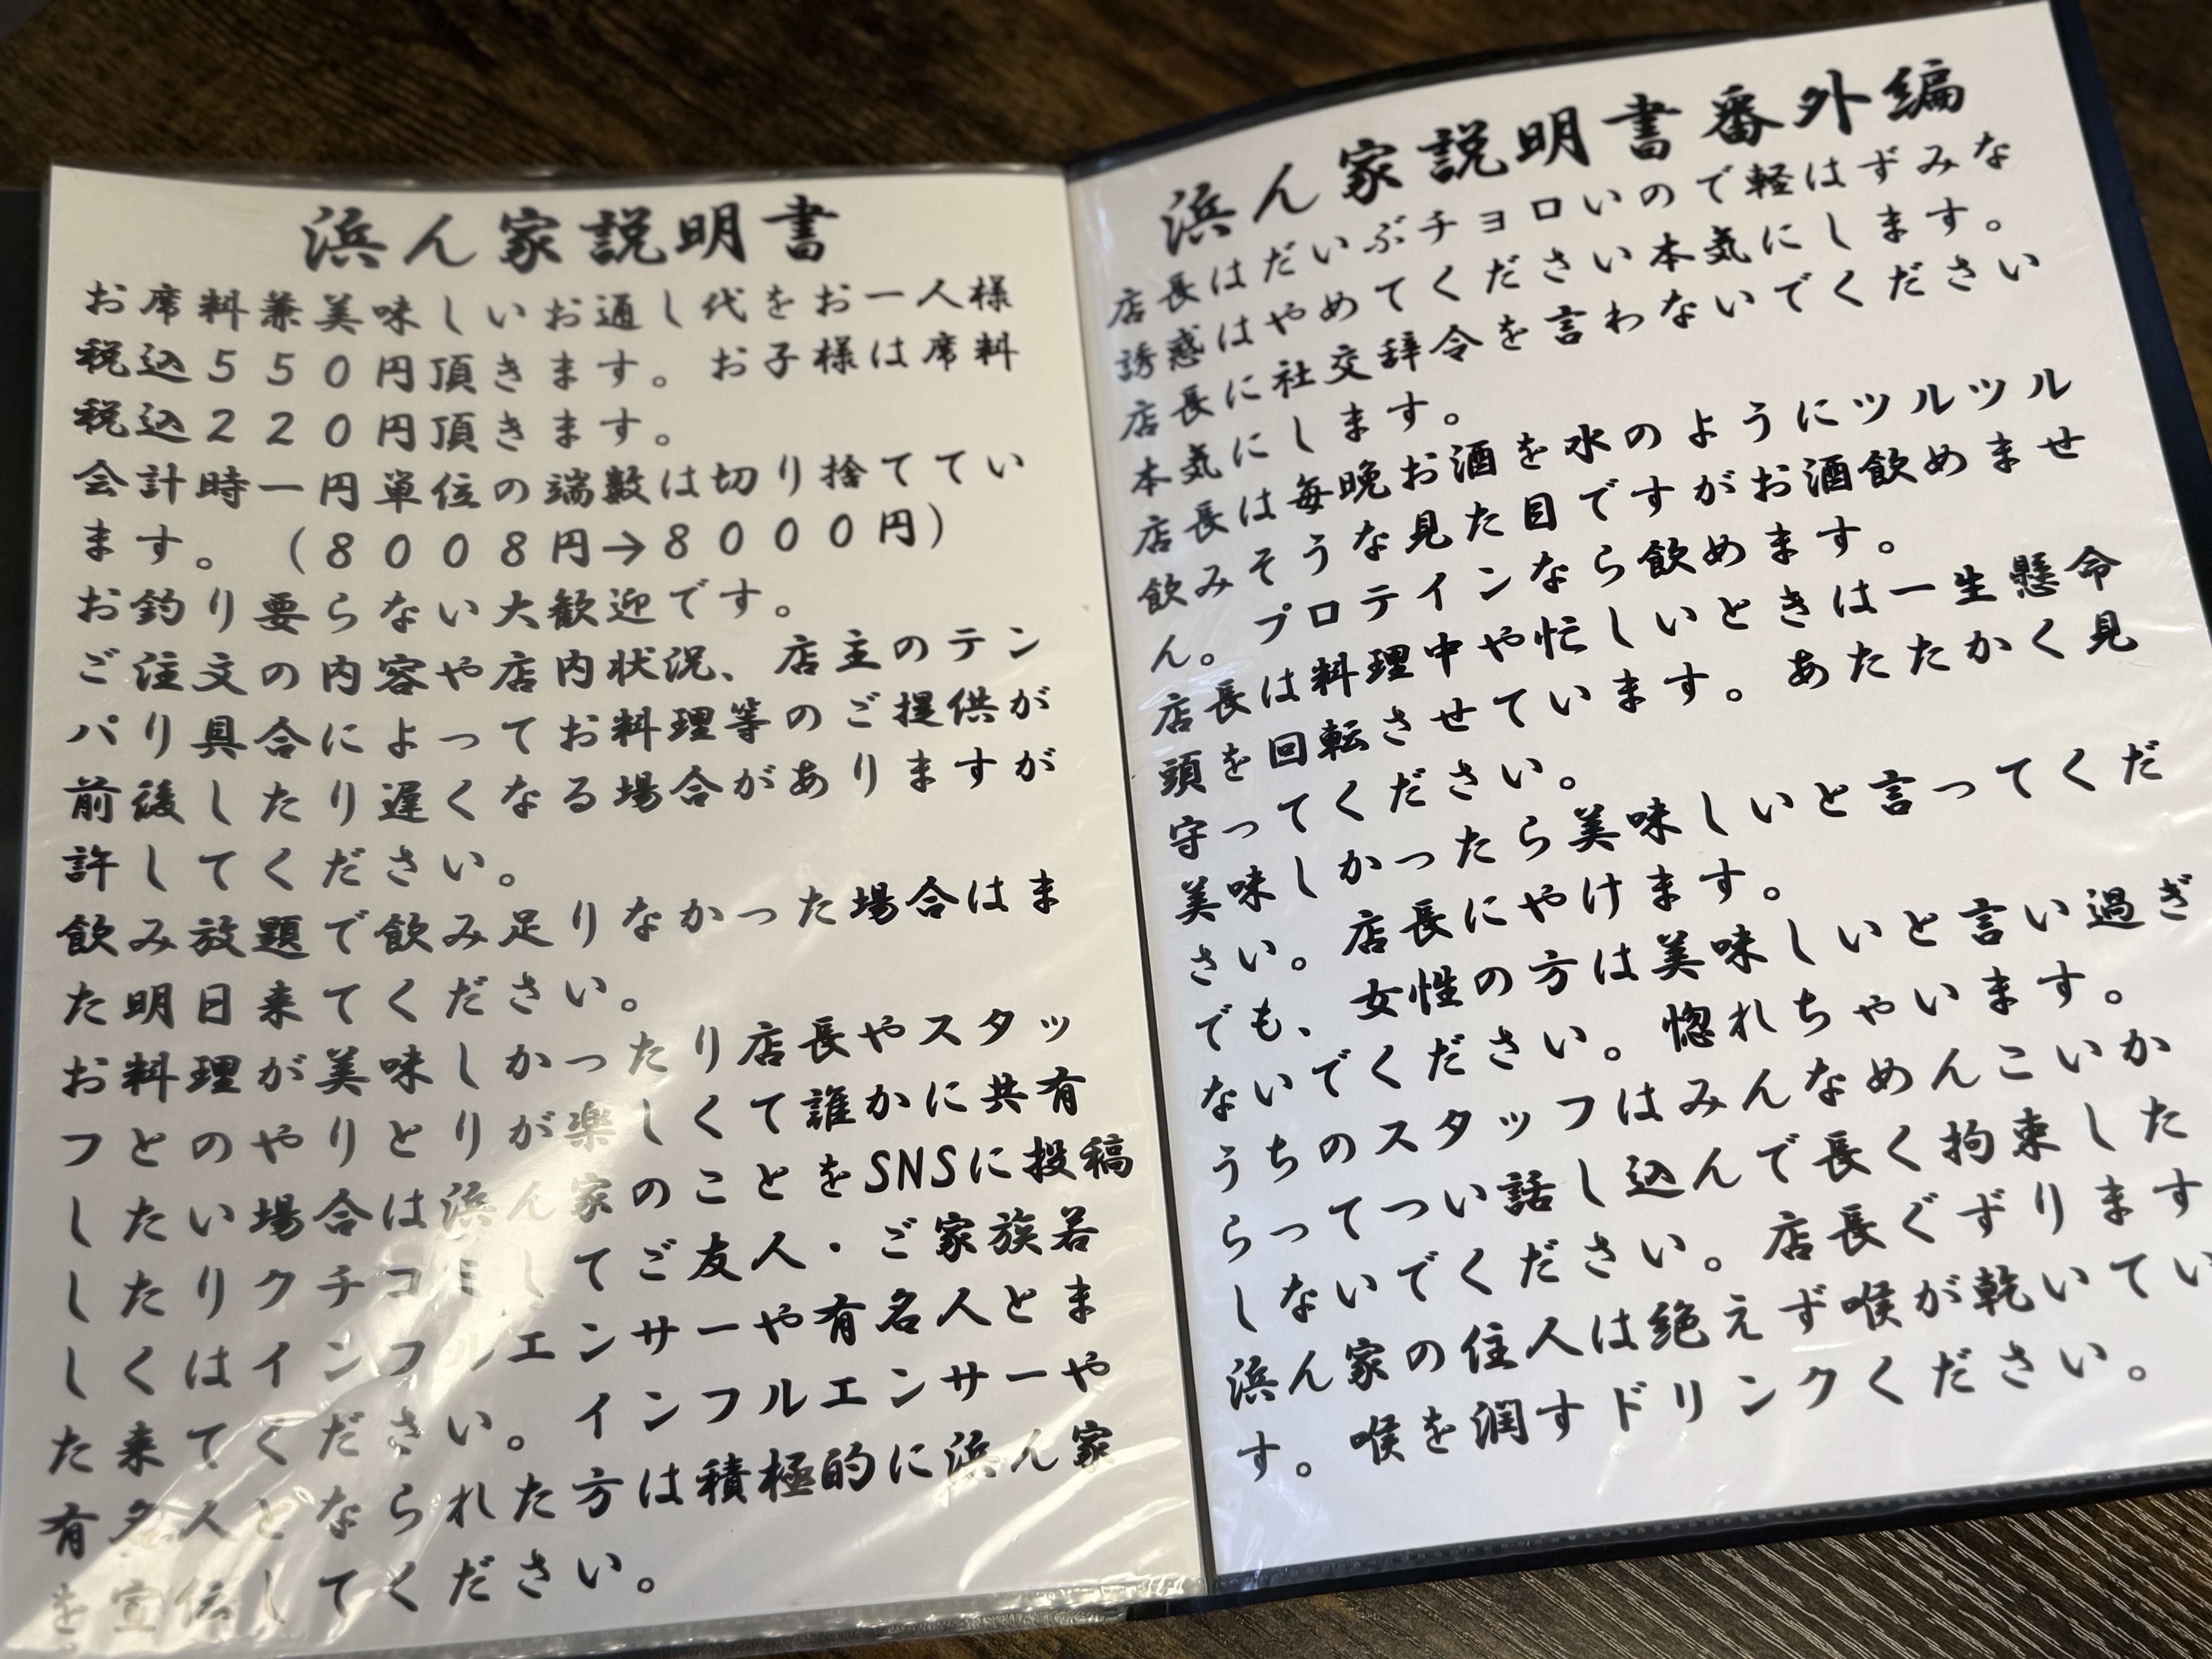 浜ん家説明書
お席料兼美味しいお通し代をお一人様
税込５５０円頂きます。お子様は席料
税込２２０円頂きます。
会計時一円単位の端数は切り捨ててい
ます。（８００８円→８０００円）
お釣り要らない大歓迎です。
ご注文の内容や店内状況、店主のテン
パり具合によってお料理等のご提供が
前後したり遅くなる場合がありますが
許してください。
飲み放題で飲み足りなかった場合はま
た明日来てください。
お料理が美味しかったり店長やスタッ
フとのやりとりが楽しくて誰かに共有
したい場合は浜ん家のことをSNSに投稿
したりクチコミしてご友人・ご家族若
しくはインフルエンサーや有名人とま
た来てください。インフルエンサーや
有名人となられた方は積極的に浜ん家
を宣伝してください。
浜ん家説明書番外編
店長はだいぶチョロいので軽はずみな
誘惑はやめてください本気にします。
店長に社交辞令を言わないでください
本気にします。
店長は毎晩お酒を水のようにツルツル
飲みそうな見た目ですがお酒飲めませ
ん。プロテインなら飲めます。
店長は料理中や忙しいときは一生懸命
頭を回転させています。あたたかく見
守ってください。
美味しかったら美味しいと言ってくだ
さい。店長にやけます。
でも、女性の方は美味しいと言い過ぎ
ないでください。惚れちゃいます。
うちのスタッフはみんなめんこいか
らってつい話し込んで長く拘束した
しないでください。店長ぐずります
浜ん家の住人は絶えず喉が乾いてい
す。喉を潤すドリンクください。